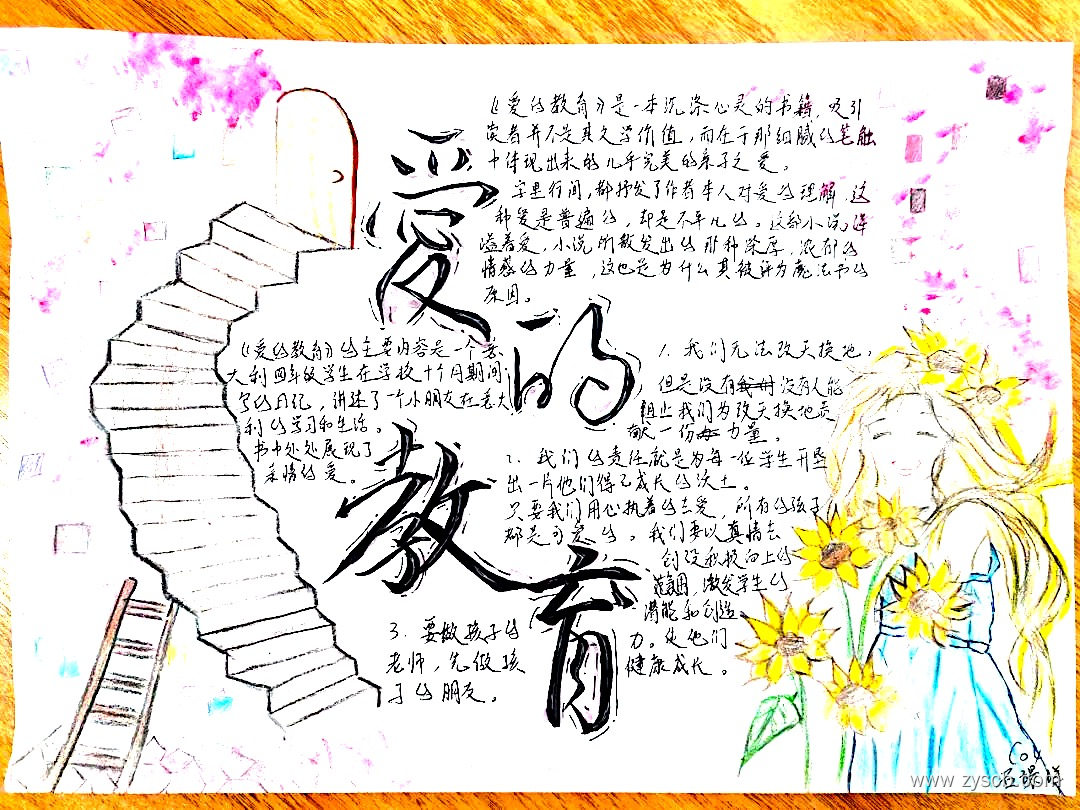 爱的教育
《爱的教育》是一本洗涤心灵的书籍，吸引
读者并不是其文学价值，而在于那细腻的笔触
中体现出来的几乎完美的亲子之爱。
字里行间，都抒发了作者本人对爱的理解，这
种爱是普遍的，却是不平凡的。这部小说洋
溢着爱，小说所散发出的那种深厚，浓郁的
情感的力量，这也是为什么其被评为魔法书的
原因。
《爱的教育》的主要内容是一个意
大利四年级学生在学校十个月期间
写的日记，讲述了一个小朋友在意大
利的学习和生活。
书中处处展现了
亲情的爱。
1. 我们无法改天换地，
但是没有没有人能
阻止我们为改天换地贡
献一份力量。
2. 我们的责任就是为每一位学生开垦
出一片他们得己成长的沃土。
只要我们用心执着的去爱，所有的孩子
都是可爱的。我们要以真情去
创设积极向上的
氛围，激发学生的
潜能和创造
力。使他们
健康成长。
3. 要做孩子的
老师，先做孩
子的朋友。
www.zysc